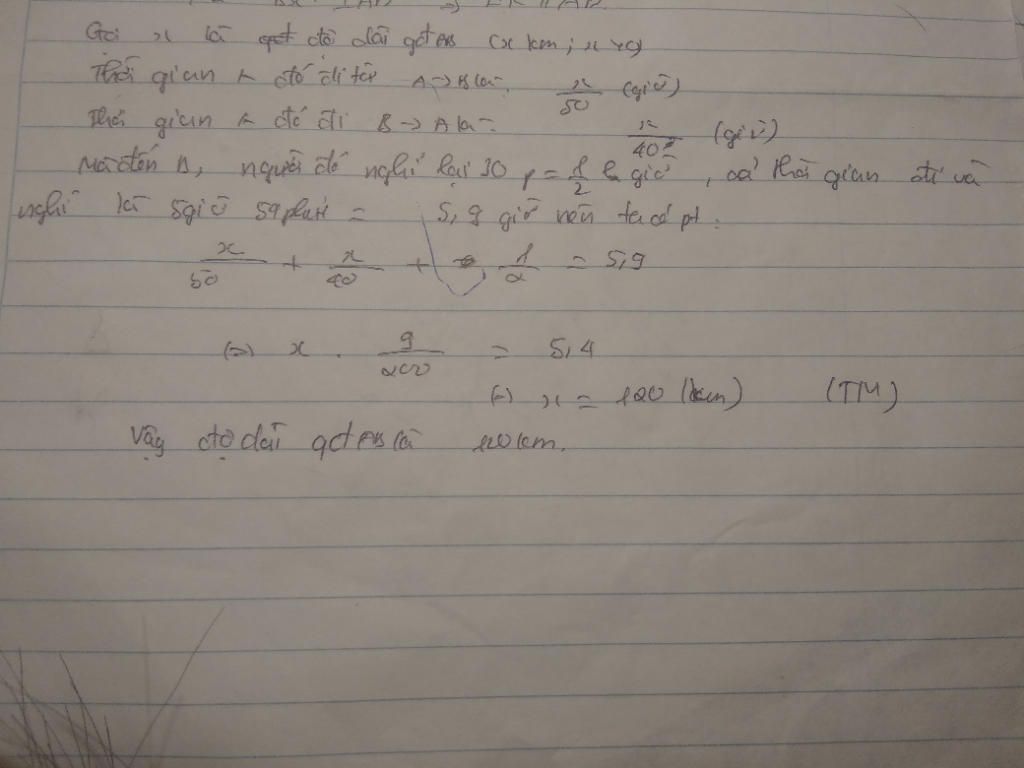 Gọi x là qđt độ dài qđ AB (x km; x > 0)
Thời gian ô tô đi từ A → B là: x/50 (giờ)
Thời gian ô tô đi B → A là: x/40 (giờ)
Mà đến B, người đó nghỉ lại 30 p = 1/2 giờ, cả thời gian đi và
nghỉ là 5 giờ 54 phút = 5,9 giờ nên ta có pt:
x/50 + x/40 + 1/2 = 5,9
(=) x . 9/200 = 5,4
(=) x = 120 (km) (TM)
Vậy độ dài qđ AB là 120km.